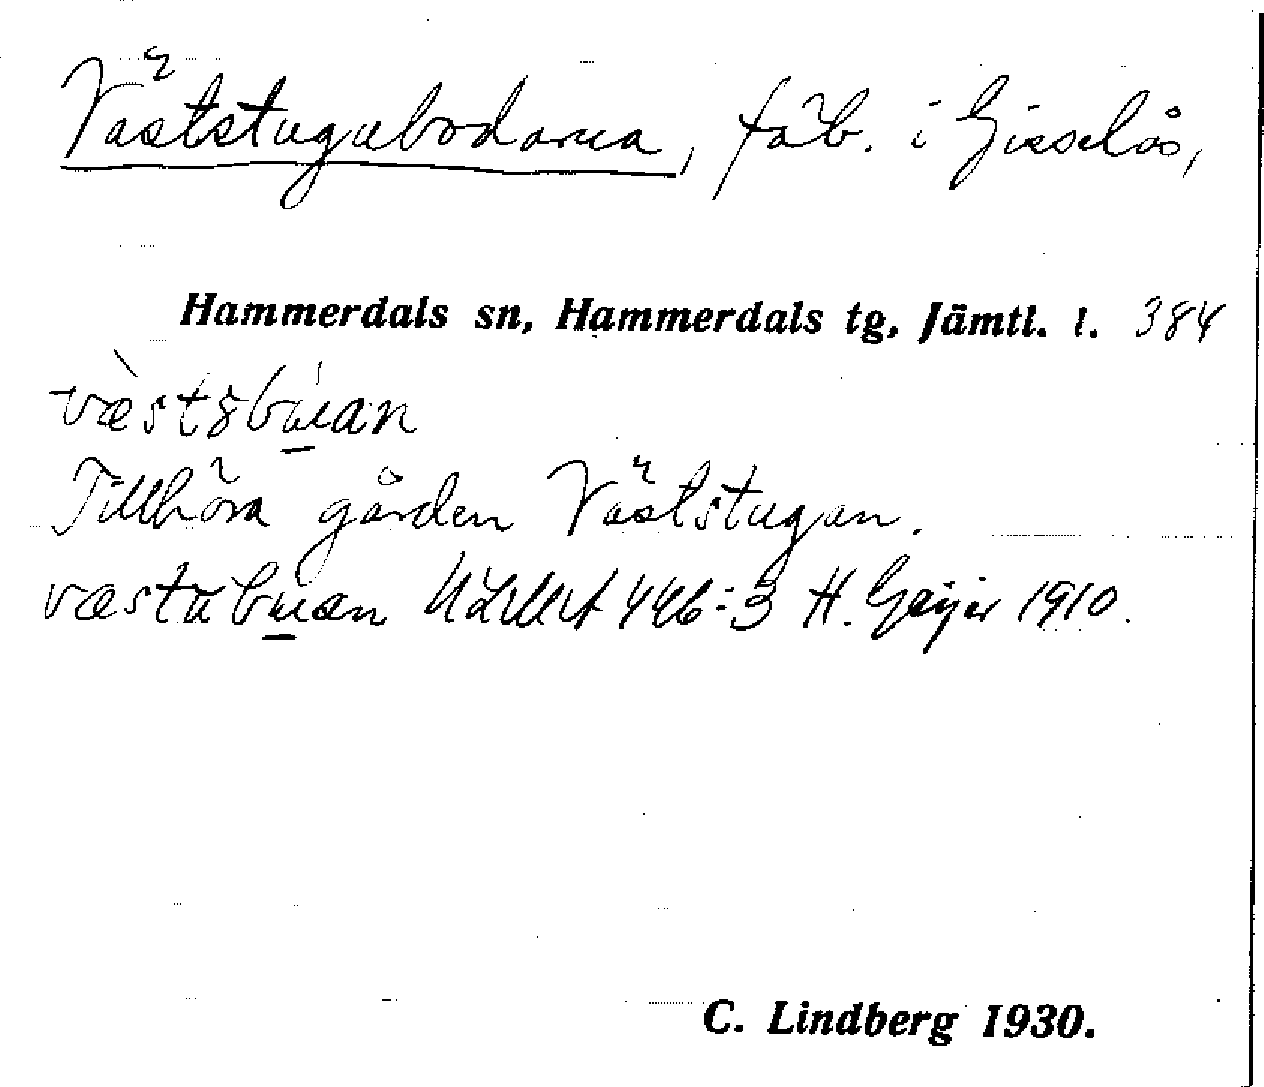 Väststugubodarna, fäb. i Gisselås,
Hammerdals sn, Hammerdals tg, Jämtl. l. 384
væ̀stsbu̱an
Tillhöra gården Väststugan.
væstubu̱æn 446:3 H. Geijer 1910.
C. Lindberg 1930.